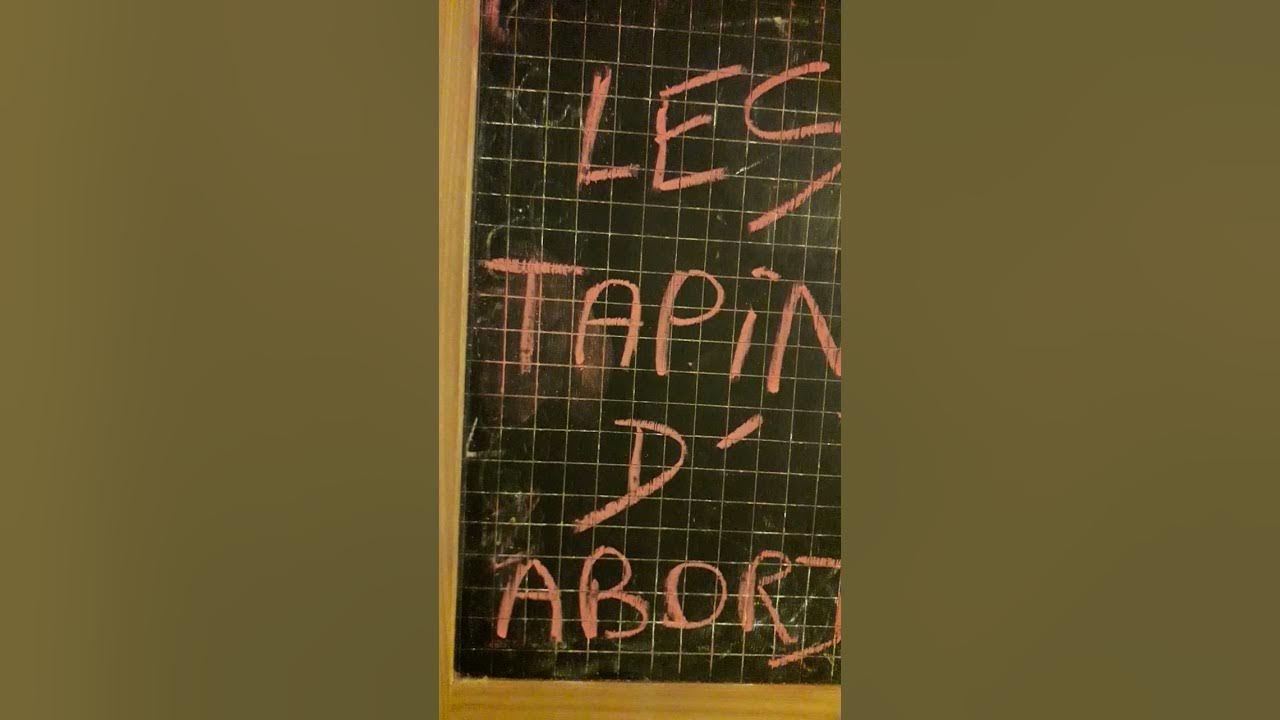 LES
TAPiN
D'
ABORD